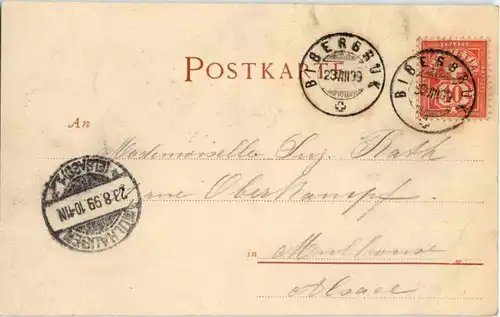 POSTKARTE
BIBERBRUK
23.VIII.99
BIBERBRUK
10
An
Mademoiselle Suz. Rath
Oberkampf
in Mulhouse
Alsace
(ELSASS)
23.8.99.10-11N
MÜLHAUSEN